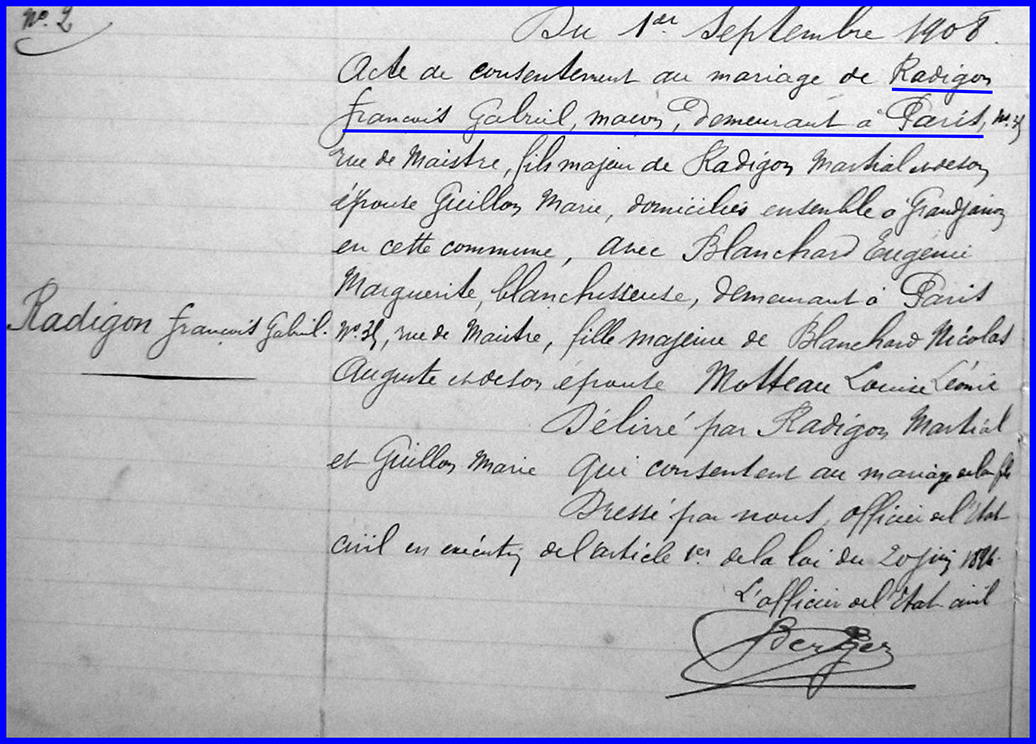 N° 2
Du 1er Septembre 1908.
Acte de consentement au mariage de Radigon
François Gabriel, maçon, demeurant à Paris, N° 25
rue de Maistre, fils majeur de Radigon Martial et de son
épouse Guillon Marie, domiciliés ensemble à Grandjanon
en cette commune, avec Blanchard Eugénie
Marguerite, blanchisseuse, demeurant à Paris
Radigon François Gabriel.
N° 25, rue de Maistre, fille majeure de Blanchard Nicolas
Auguste et de son épouse Motteau Louise Léonie
Délivré par Radigon Martial
et Guillon Marie qui consentent au mariage de leur fils
Dressé par nous, officier de l'Etat
civil en exécution de l'article 1er de la loi du 20 juin 1896.
L'officier de l'Etat civil
Berger